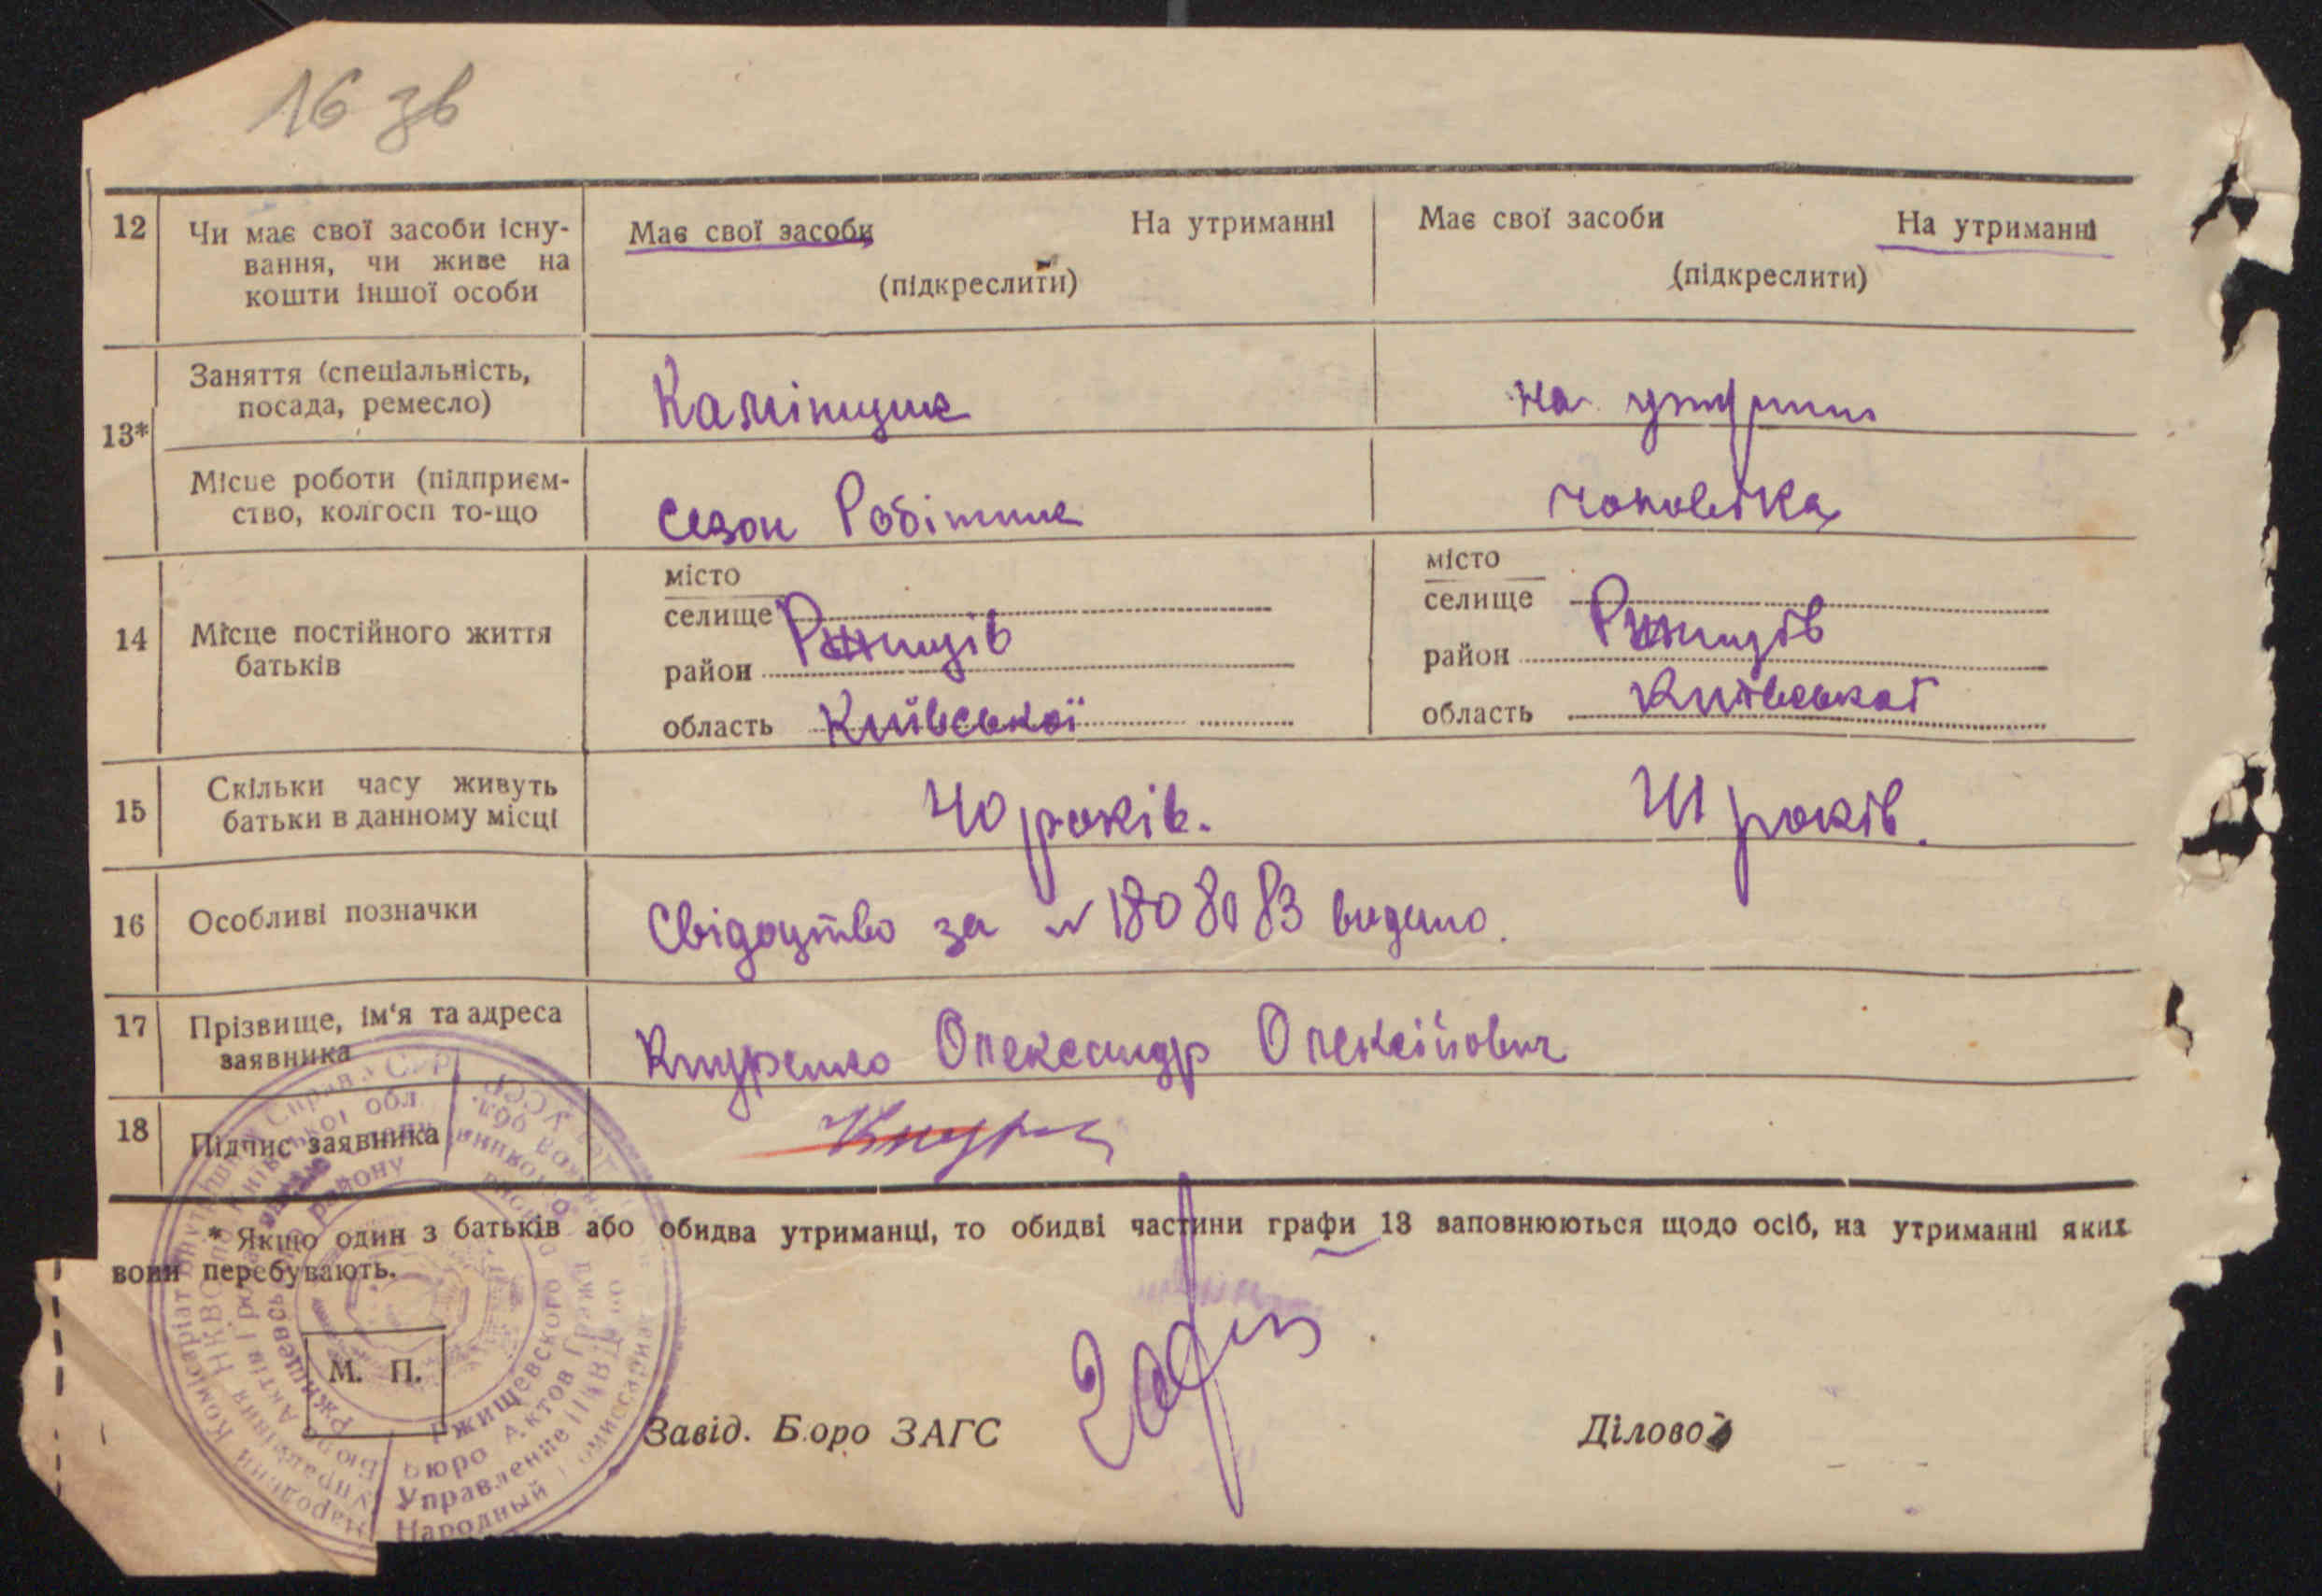 16 зв
12 Чи має свої засоби існу-
вання, чи живе на
кошти іншої особи
Має свої засоби На утриманні
(підкреслити)
Має свої засоби На утриманні
(підкреслити)
13*
Заняття (спеціальність,
посада, ремесло)
на
Місце роботи (підприєм-
ство, колгосп то-що
Сезон Робітник
чоловіка
14 Місце постійного життя
батьків
місто
селище
район Ржищів
область Київської
місто
селище
район Ржищів
область Київської
15 Скільки часу живуть
батьки в данному місці
40 років.
41 років.
16 Особливі позначки
Свідоцтво за № 1808083 видано.
17 Прізвище, ім'я та адреса
заявника
Кнуренко Олександр Олексійович
18 Підчис заявника
* Якщо один з батьків або обидва утриманці, то обидві частини графи 13 заповнюються щодо осіб, на утриманні яких
вони перебувають.
М. П.
Завід. Бюро ЗАГС
Діловод
Ржищевского
Бюро Актов
Управление НКВД
Народный